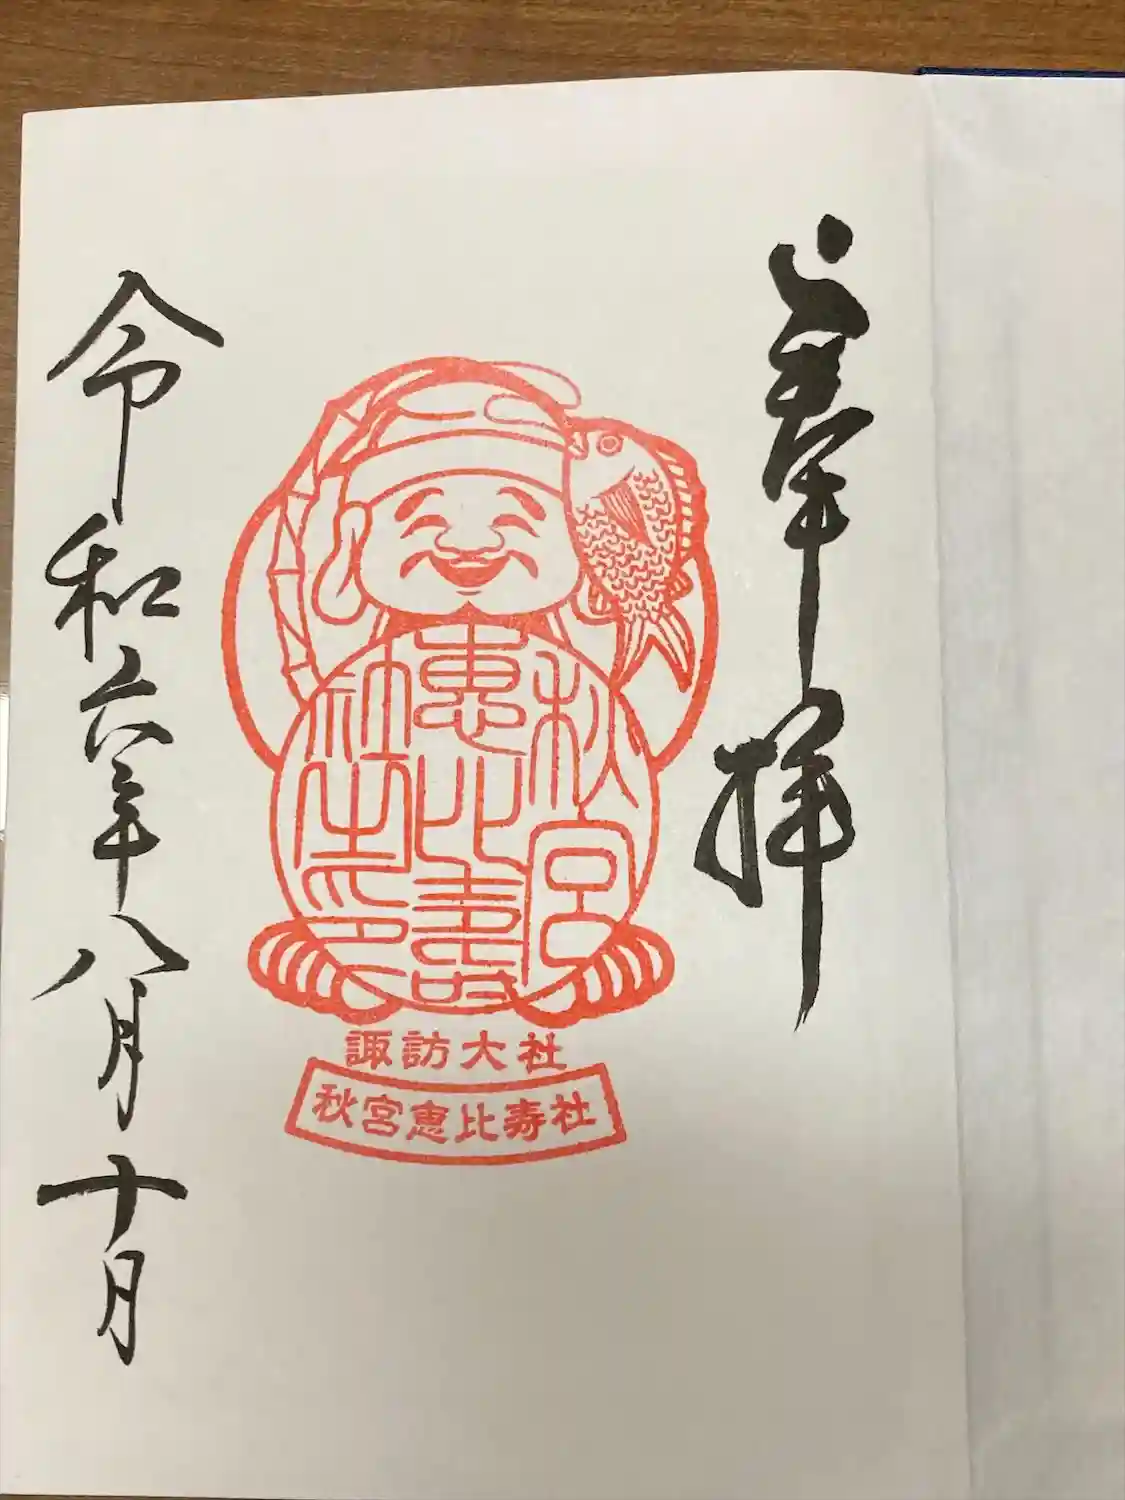 奉拝
秋宮
惠比寿
社之印
諏訪大社
秋宮恵比寿社
令和六年八月十日